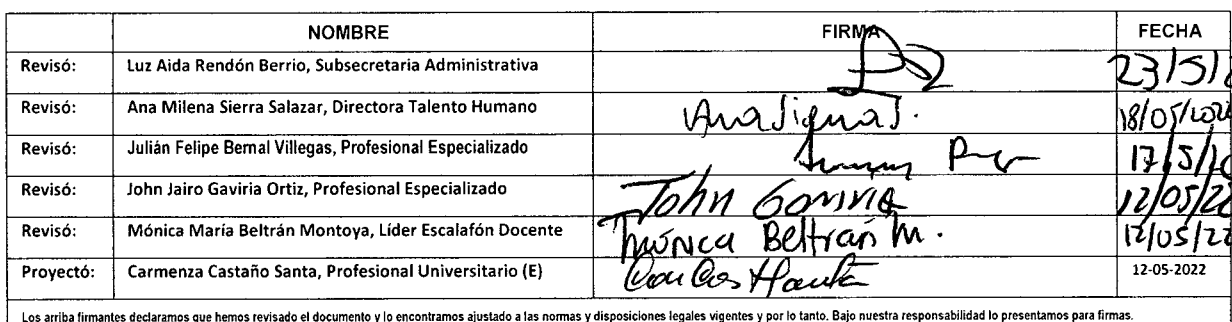 NOMBRE FIRMA FECHA
Revisó: Luz Aida Rendón Berrio, Subsecretaria Administrativa 23/5/
Revisó: Ana Milena Sierra Salazar, Directora Talento Humano 18/05/
Revisó: Julián Felipe Bernal Villegas, Profesional Especializado 17/5/
Revisó: John Jairo Gaviria Ortiz, Profesional Especializado John Gaviria 12/05/
Revisó: Mónica María Beltrán Montoya, Líder Escalafón Docente Mónica Beltrán M. 12/05/22
Proyectó: Carmenza Castaño Santa, Profesional Universitario (E) 12-05-2022
Los arriba firmantes declaramos que hemos revisado el documento y lo encontramos ajustado a las normas y disposiciones legales vigentes y por lo tanto. Bajo nuestra responsabilidad lo presentamos para firmas.